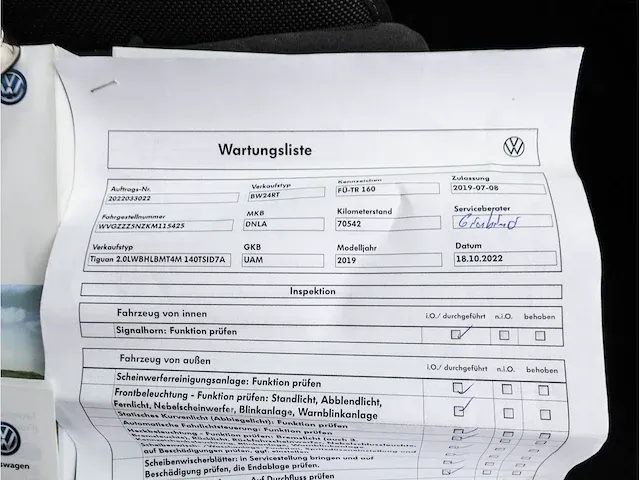 Wartungsliste
Auftrags-Nr. Verkaufstyp Kennzeichen Zulassung
2022033022 BW24RT FÜ-TR 160 2019-07-08
Fahrgestellnummer MKB Kilometerstand Serviceberater
WVGZZZ5NZKM115425 DNLA 70542
Verkaufstyp GKB Modelljahr Datum
Tiguan 2.0LWBHLBMT4M 140TSID7A UAM 2019 18.10.2022
Inspektion
Fahrzeug von innen i.O./ durchgeführt n.i.O. behoben
Signalhorn: Funktion prüfen
Fahrzeug von außen i.O./ durchgeführt n.i.O. behoben
Scheinwerferreinigungsanlage: Funktion prüfen
Frontbeleuchtung - Funktion prüfen: Standlicht, Abblendlicht,
Fernlicht, Nebelscheinwerfer, Blinkanlage, Warnblinkanlage
Statisches Kurvenlicht (Abbiegelicht): Funktion prüfen
Automatische Fahrlichtsteuerung: Funktion prüfen
Heckbeleuchtung - Funktion prüfen: Bremslicht (auch 3.
auf Beschädigungen prüfen, ggf.
Scheibenwischerblätter: in Servicestellung bringen und auf
Beschädigung prüfen, die Endablage prüfen.
auf Durchfluss prüfen